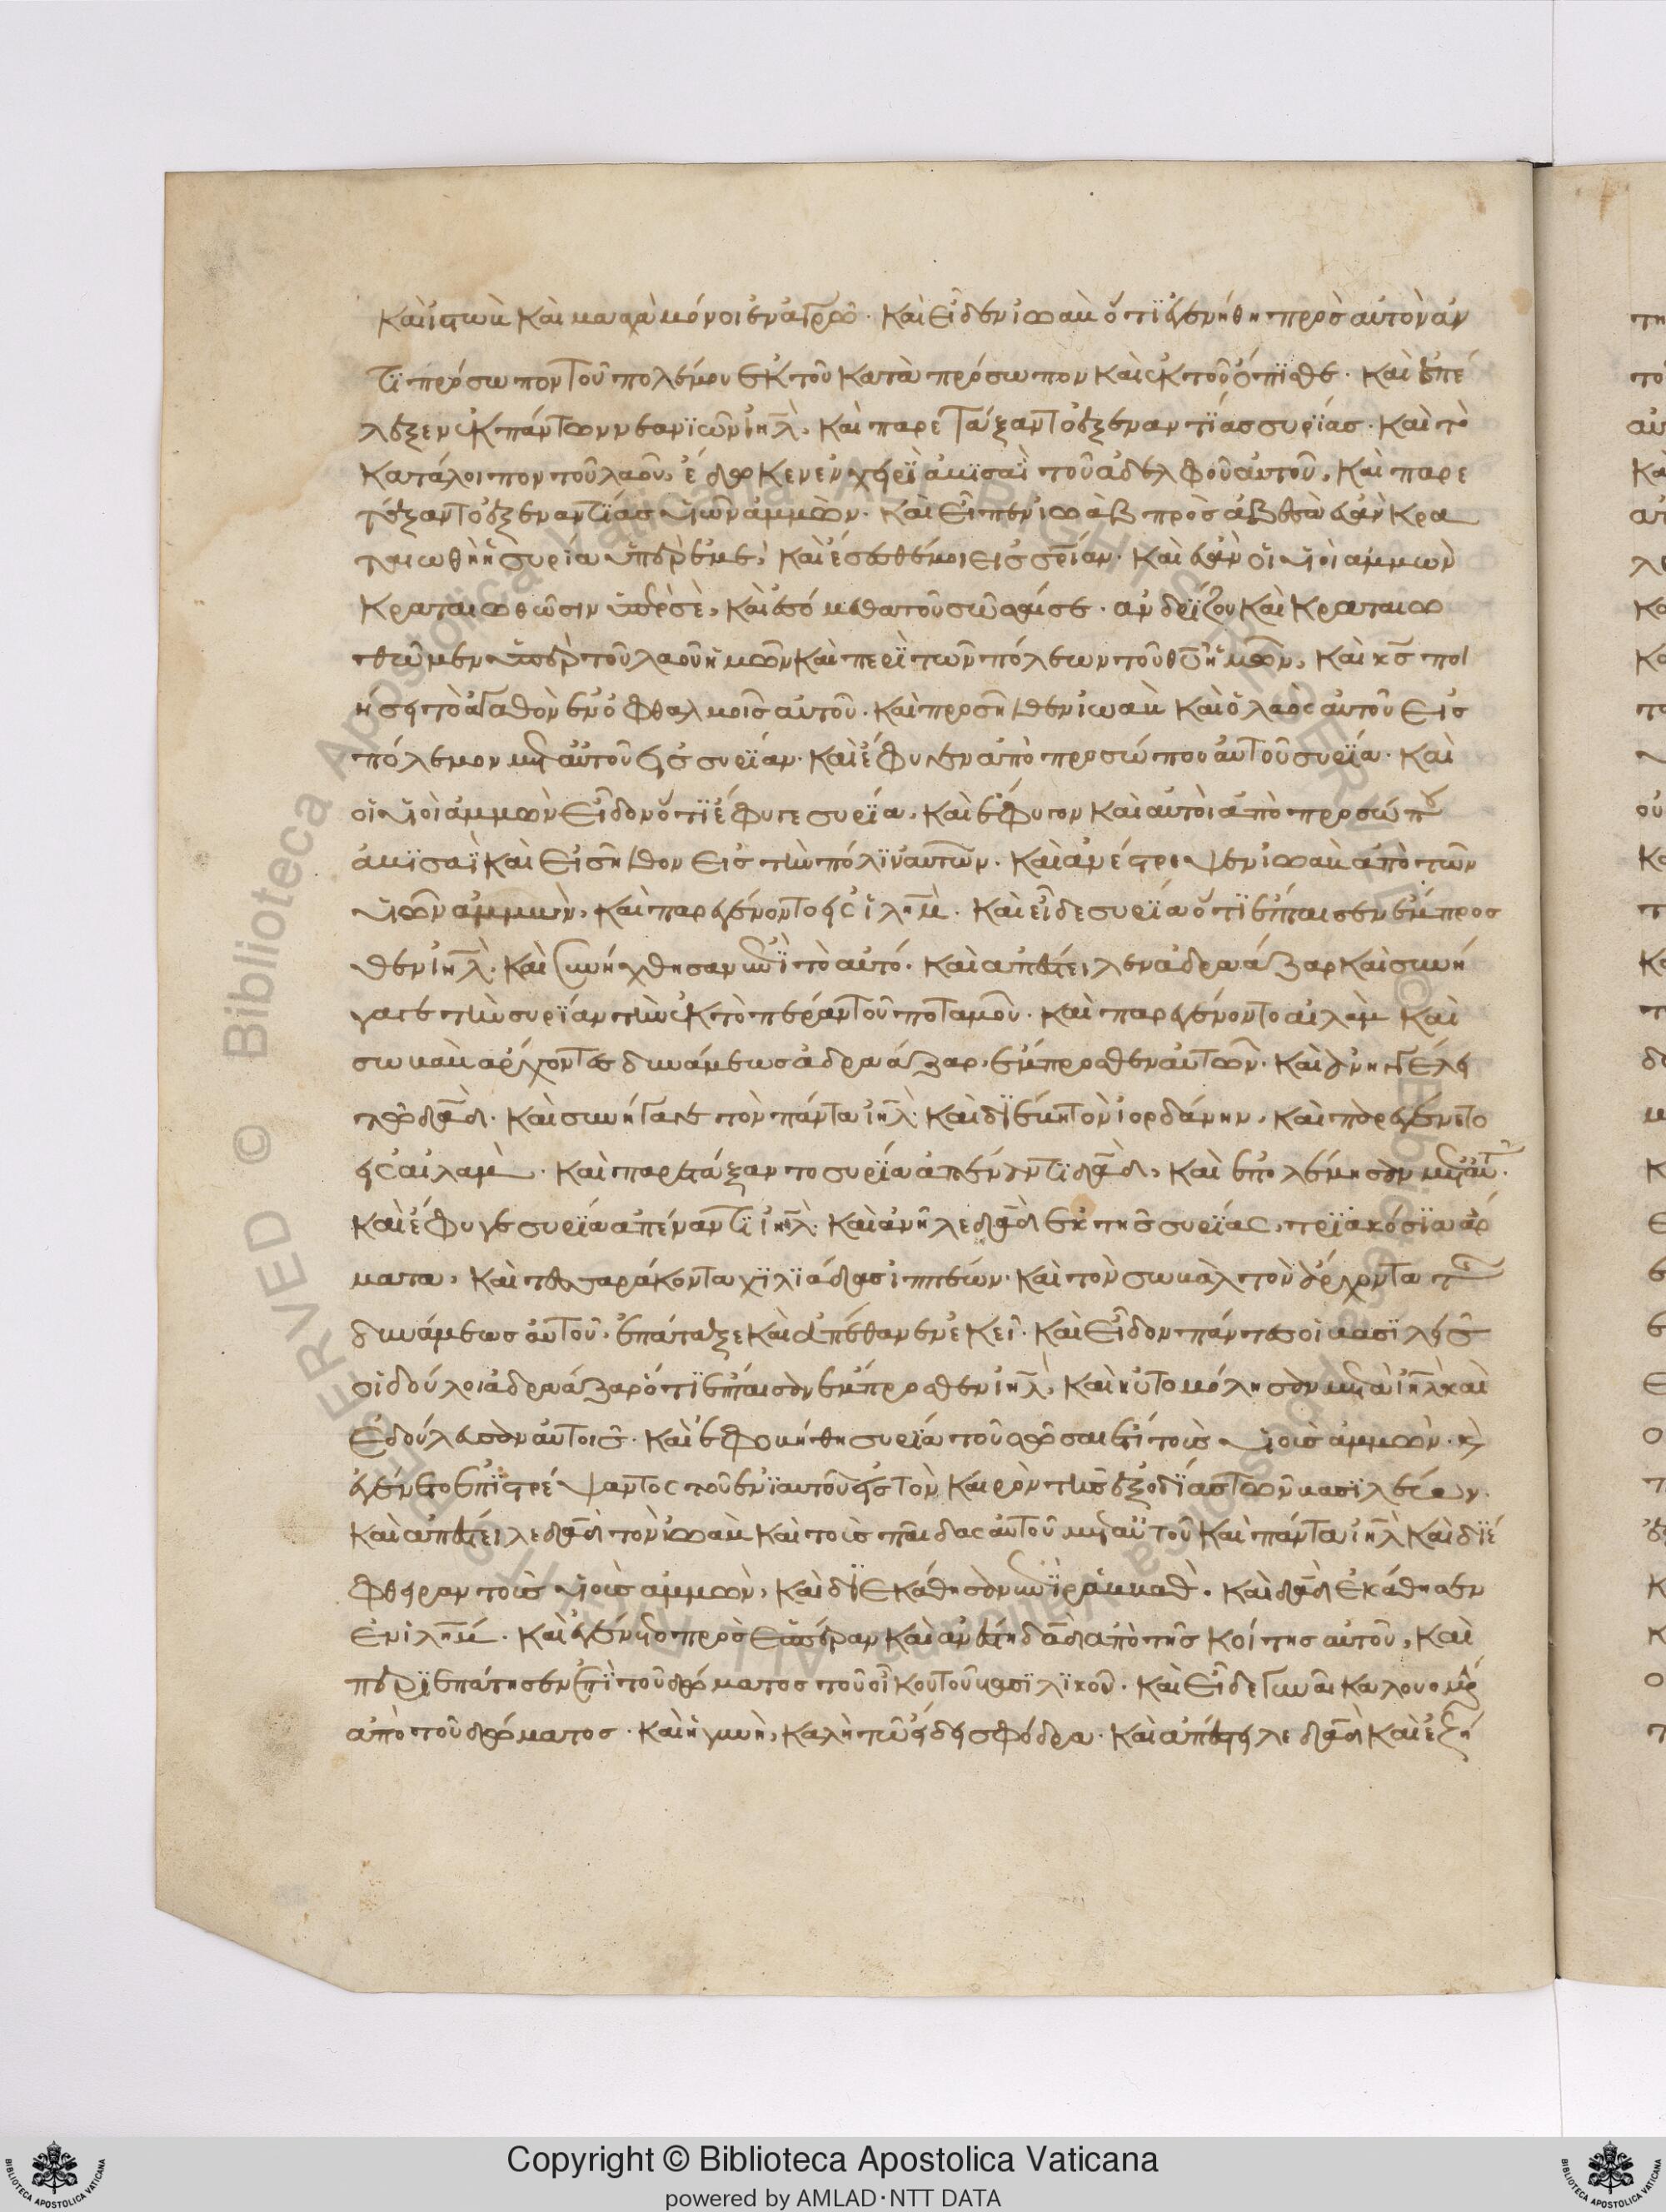 καὶ ἰστὼβ καὶ μααχὰ μόνοι ἐν ἀγρῶ· καὶ εἶδεν ἰωαὺ ὅτι ἐγενήθη πρὸς αὐτὸν ἀν
τιπρόσωπον τοῦ πολέμου ἐκ τοῦ κατὰ πρόσωπον καὶ ἐκ τοῦ ὄπισθε· καὶ ἐπέ
λεξεν ἐκ πάντων νεανιῶν ἰηλ, καὶ παρετάξαντο ἐξεναντίας συρίας· καὶ τὸ
κατάλοιπον τοῦ λαοῦ, ἔδωκεν ἐν χειρὶ ἀβισαὶ τοῦ ἀδελφοῦ αὐτοῦ, καὶ παρε
τάξαντο ἐξεναντίας υἱῶν ἀμμών· καὶ εἶπεν ἰωὰβ πρὸς ἀβεσὰ ἐὰν κρα
ταιωθῆ ἡ συρία ὑπὲρ ἐμὲ, καὶ ἔσεσθέ μοι εἰς σρίαν· καὶ ἐὰν οἱ υἱοὶ ἀμμὼν
κραταιωθῶσιν ὑπὲρ σὲ, καὶ ἐσόμεθα τοῦ σῶσαί σε· ἀνδρίζου καὶ κραταιω
θῶμεν ὑπὲρ τοῦ λαοῦ ἡμῶν καὶ περὶ τῶν πόλεων τοῦ θυ ἡμῶν, καὶ κς ποι
ήσει τὸ ἀγαθὸν ἐν ὀφθαλμοῖς αὐτοῦ· καὶ προσῆλθεν ἰωαὺ καὶ ὁ λαὸς αὐτοῦ εἰς
πόλεμον μετ αὐτοῦ εἰς συρίαν· καὶ ἔφυγεν ἀπὸ προσώπου αὐτοῦ συρία· καὶ
οἱ υἱοὶ ἀμμὼν εἶδον ὅτι ἔφυγε συρία, καὶ ἔφυγον καὶ αὐτοὶ ἀπὸ προσώπου
ἀβισαὶ καὶ εἰσῆλθον εἰς τὴν πόλιν αὐτῶν· καὶ ἀνέστρεψεν ἰωαὺ ἀπὸ τῶν
υἱῶν ἀμμὼν, καὶ παρεγένοντο εἰς ἰλημ· καὶ εἶδε συρία ὅτι ἔπταισεν ἔμπροσ
θεν ἰηλ· καὶ συνήχθησαν ἐπὶ τὸ αὐτό· καὶ ἀπέστειλεν ἀδραάζαρ καὶ συνή
γαγε τὴν συρίαν τὴν ἐκ τὸ πέραν τοῦ ποταμοῦ· καὶ παρεγένοντο αἰλὰμ καὶ
σωβὰκ ἄρχοντες δυνάμεως ἀδραάζαρ, ἔμπροσθεν αὐτῶν· καὶ ἀνηγγέλη
τῶ δαδ· καὶ συνήγαγε τὸν πάντα ἰηλ· καὶ διέβη τὸν ἰορδάνην, καὶ παρεγένετο
εἰς αἰλαμὰ· καὶ παρετάξαντο συρία ἀπέναντι δαδ, καὶ ἐπολέμησαν μετ αὐτοῦ·
καὶ ἔφυγε συρία ἀπέναντι ἰηλ· καὶ ἀνῆλε δαδ ἐκ τῆς συρίας, τριακόσια ἅρ
ματα, καὶ τεσσαράκοντα χιλιάδας ἱππέων· καὶ τὸν σωβὰκ τὸν ἄρχοντα τῆς
δυνάμεως αὐτοῦ, ἐπάταξε καὶ ἀπέθανεν ἐκεῖ· καὶ εἶδον πάντες οἱ βασιλεῖς
οἱ δοῦλοι ἀδραάζαρ ὅτι ἔπταισαν ἔμπροσθεν ἰηλ, καὶ ηὐτομόλησαν μετὰ ἰηλ καὶ
ἐδούλευσαν αὐτοῖς· καὶ ἐφοβήθη συρία τοῦ σῶσαι ἔτι τοὺς υἱοὺς ἀμμών· κ
ἐγένετο ἐπιστρέψαντος τοῦ ἐνιαυτοῦ εἰς τὸν καιρὸν τῆς ἐξοδίας τῶν βασιλέων·
καὶ ἀπέστειλε δαδ τὸν ἰωαβ καὶ τοὺς παῖδας αὐτοῦ μετ αὐτοῦ καὶ πάντα ἰηλ καὶ διέ
φθειραν τοὺς υἱοὺς ἀμμὼν, καὶ διεκάθησαν ἐπὶ ῥαββαθ· καὶ δαδ ἐκάθησεν
ἐν ἰλημ· καὶ ἐγένετο πρὸς ἑσπέραν καὶ ἀνέστη δαδ ἀπὸ τῆς κοίτης αὐτοῦ, καὶ
περιεπάτησεν ἐπὶ τοῦ δώματος τοῦ οἴκου τοῦ βασιλικοῦ· καὶ εἶδε γυναῖκα λουομέ
ἀπὸ τοῦ δώματος· καὶ ἡ γυνὴ, καλὴ τῶ εἴδει σφόδρα· καὶ ἀπέστειλε δαδ καὶ ἐζή
Copyright © Biblioteca Apostolica Vaticana
powered by AMLAD·NTT DATA